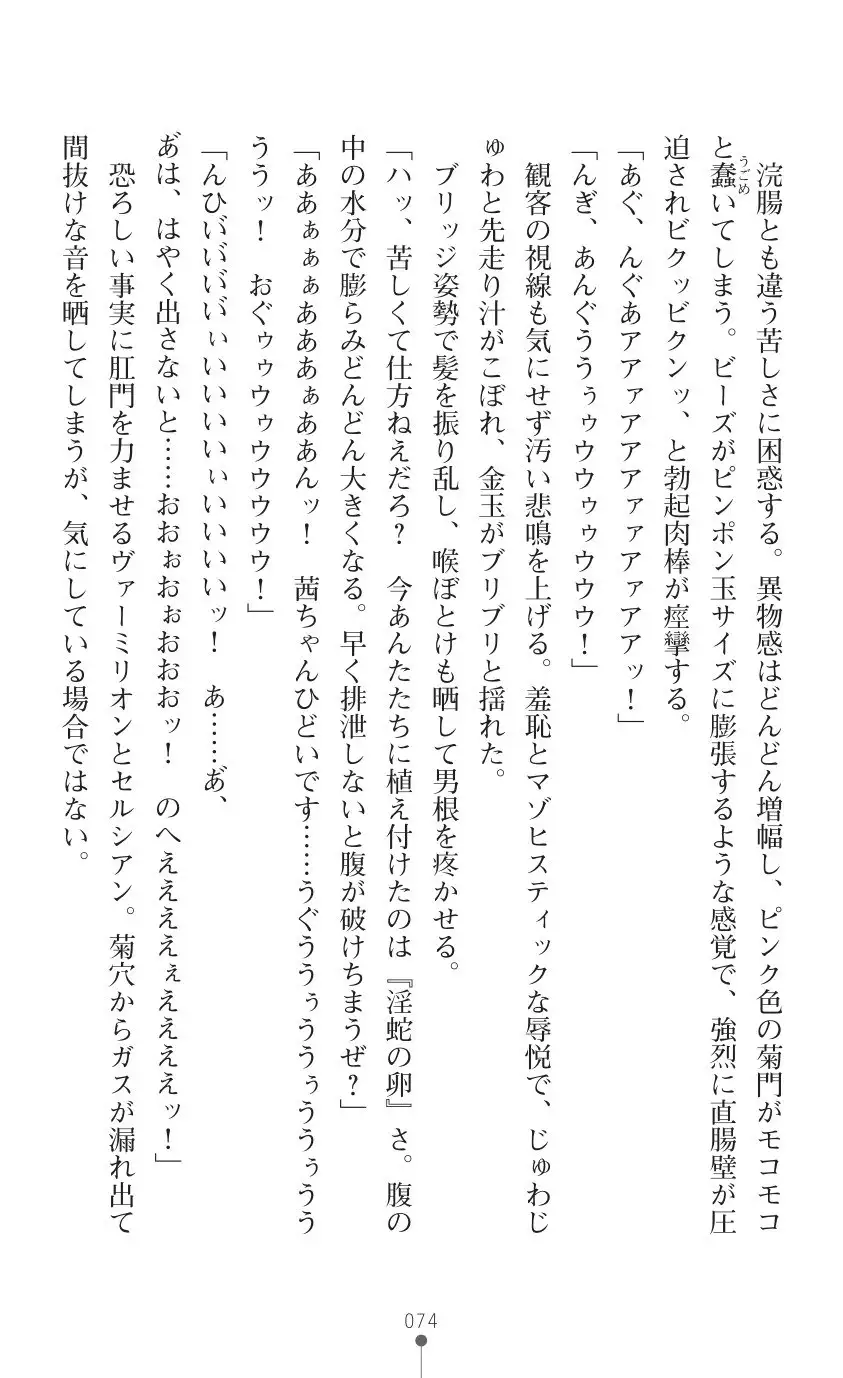 浣腸とも違う苦しさに困惑する。異物感はどんどん増幅し、ピンク色の菊門がモコモコ
と蠢いてしまう。ビーズがピンポン玉サイズに膨張するような感覚で、強烈に直腸壁が圧
うごめ
迫されビクッビクンッ、と勃起肉棒が痙攣する。
「あぐ、んぐあアアァアアアァァアァアアッ！」
「んぎ、あんぐううぅゥウウゥゥウウウ！」
観客の視線も気にせず汚い悲鳴を上げる。羞恥とマゾヒスティックな辱悦で、じゅわじ
ゅわと先走り汁がこぼれ、金玉がブリブリと揺れた。
ブリッジ姿勢で髪を振り乱し、喉ぼとけも晒して男根を疼かせる。
「ハッ、苦しくて仕方ねえだろ？　今あんたたちに植え付けたのは『淫蛇の卵』さ。腹の
中の水分で膨らみどんどん大きくなる。早く排泄しないと腹が破けちまうぜ？」
「ああぁぁぁあああぁああんッ！　茜ちゃんひどいです……うぐううぅううぅううぅうう
ううッ！　おぐゥゥウゥウウウウウ！」
「んひい゛い゛い゛い゛ぃいいいいいぃいいいいいッ！　あ……あ゛、
あ゛は、はやく出さないと……おおぉおぉおおおッ！　のへええええぇええええッ！」
恐ろしい事実に肛門を力ませるヴァーミリオンとセルシアン。菊穴からガスが漏れ出て
間抜けな音を晒してしまうが、気にしている場合ではない。
074